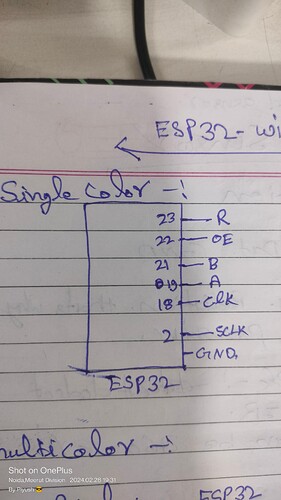 ESP32-wi
Single color -:
23 R
22 OE
21 B
19 A
18 CLK
2 SCLK
GND,
ESP32
multicolor -:
Shot on OnePlus
Noida,Meerut Division 2024.02.28 19:31
By Piyush😎
ESP32